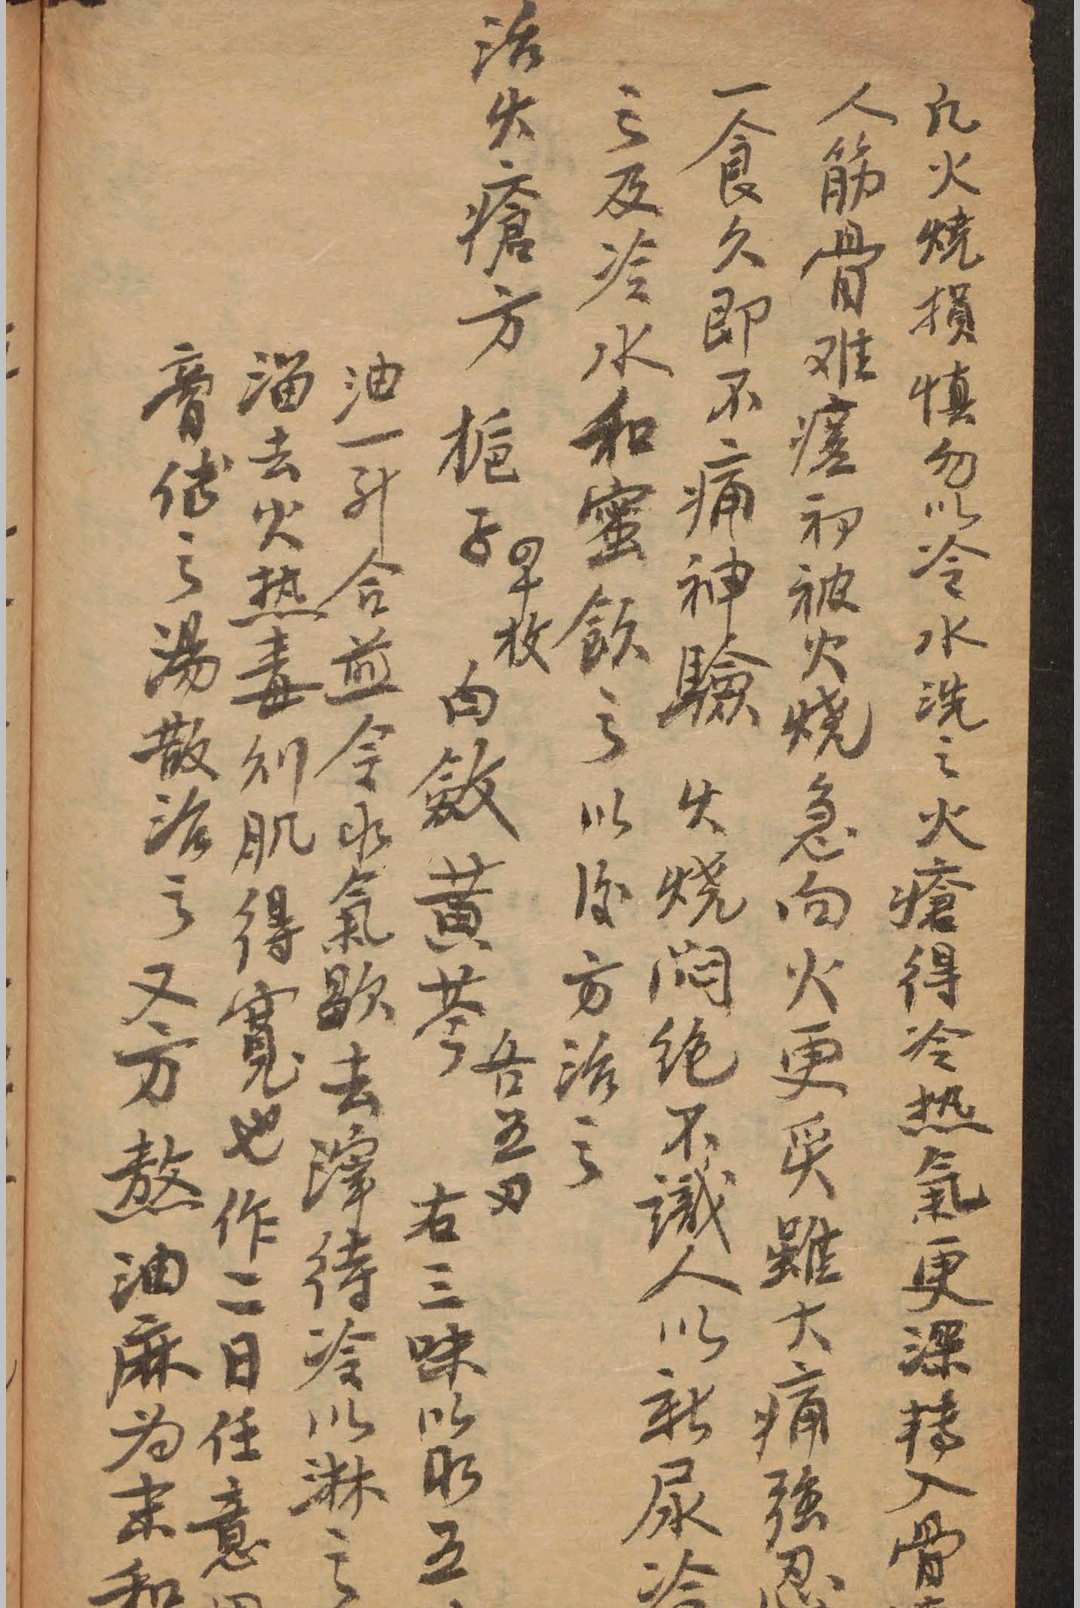 凡火燒損慎勿以冷水洗之火瘡得冷热氣更深轉入骨
人筋骨难瘥初被火燒急向火更炙雖大痛強忍
一食久即不痛神驗 火燒悶绝不識人以新尿冷
之及冷水和蜜飲之以後方治之
治火瘡方 梔子四十枚 白斂黃芩各五两 右三味以水五
油一升合煎令水氣歇去滓待冷以淋之
溜去火热毒则肌得寬也作二日任意用
膏傅之湯散治之又方熬油麻为末和